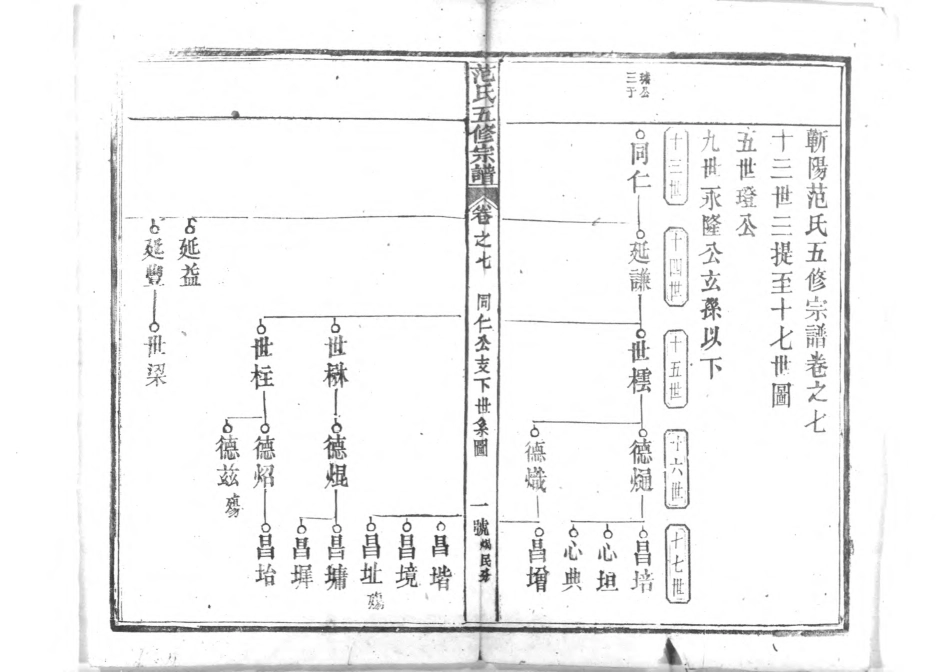 蘄陽范氏五修宗譜卷之七
十三世二提至十七世圖
五世璒公
九世永隆公玄孫以下
三子
十三世
十四世
十五世
十六世
十七世
同仁
延謙
世檽
德熾
昌培
心坦
心典
昌增
范氏五修宗譜
卷之七
同仁公支下世系圖
一號
昌堦
昌境
昌址
殤
世楙
德焜
昌墉
昌墀
世柱
德炤
昌坮
德茲
殤
延益
延豐
世梁